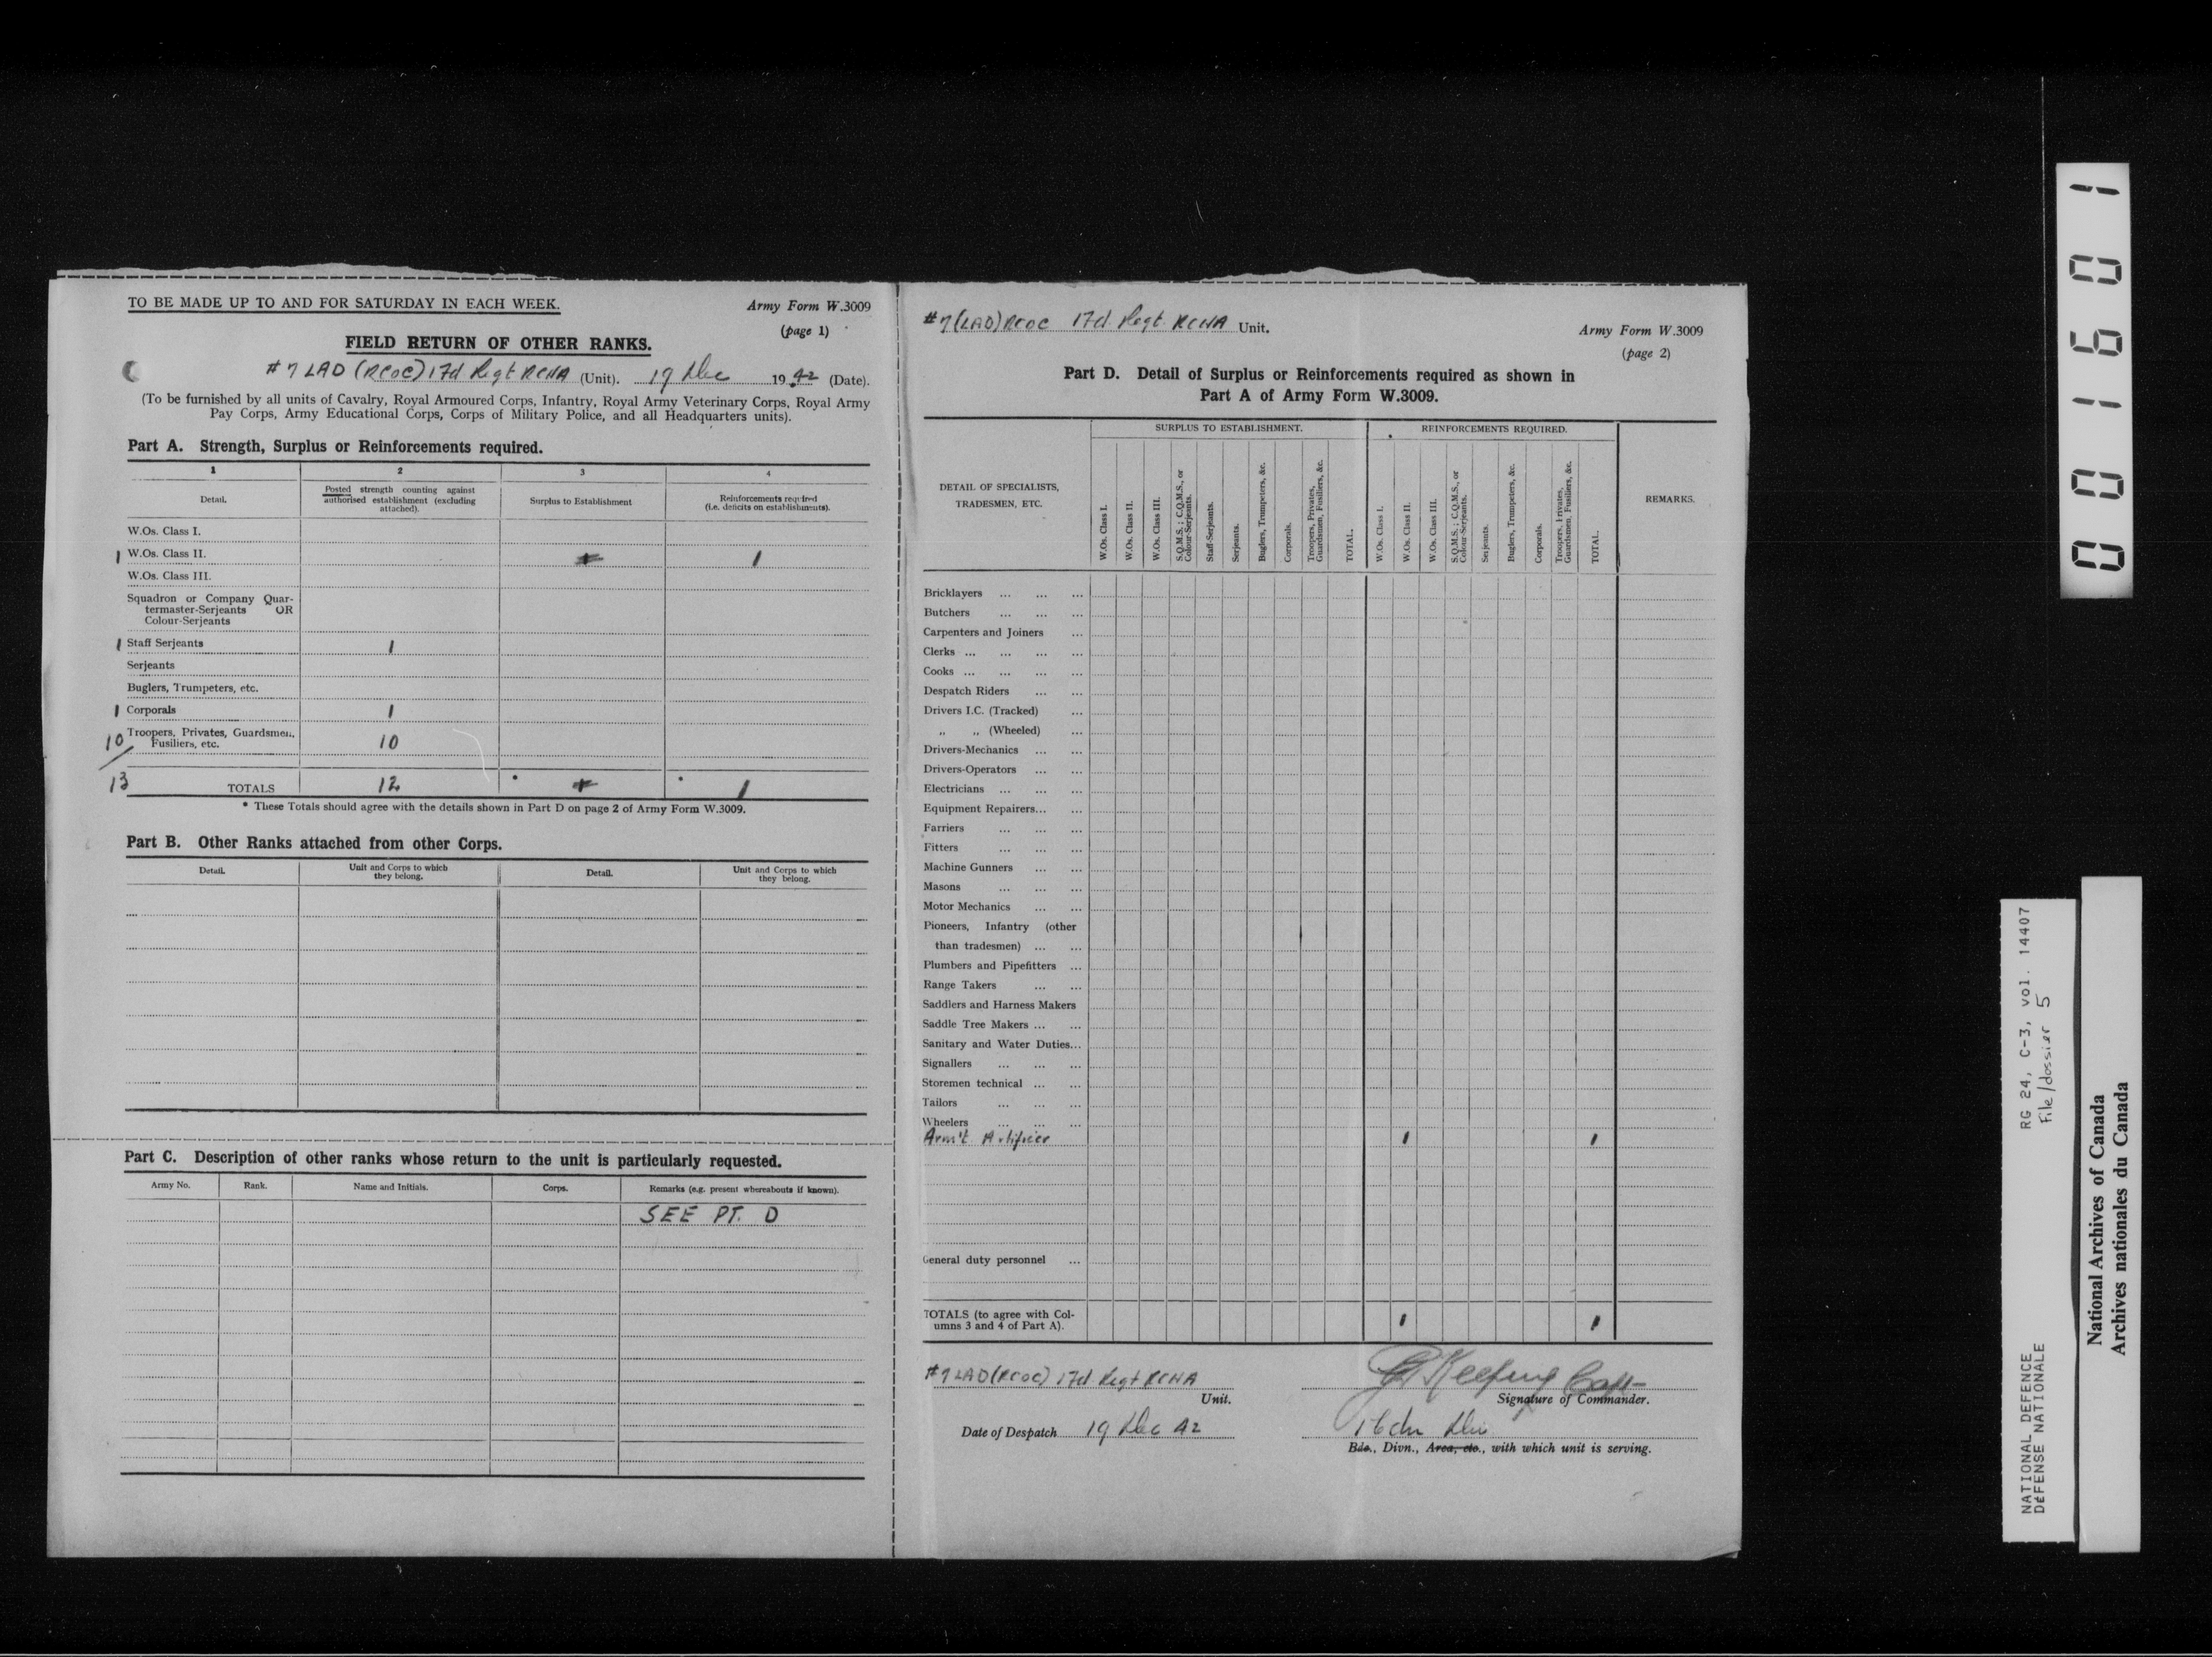 TO BE MADE UP TO AND FOR SATURDAY IN EACH WEEK.
Army Form W.3009
(page 1)
FIELD RETURN OF OTHER RANKS.
#7 LAD (RCOC) 17d Regt RCHA (Unit). 19 Dec 1942 (Date).
(To be furnished by all units of Cavalry, Royal Armoured Corps, Infantry, Royal Army Veterinary Corps, Royal Army
Pay Corps, Army Educational Corps, Corps of Military Police, and all Headquarters units).
Part A. Strength, Surplus or Reinforcements required.
1 2 3 4
Detail.
Posted strength counting against
authorised establishment (excluding
attached).
Surplus to Establishment
Reinforcements required
(i.e. deficits on establishments).
W.Os. Class I.
1 W.Os. Class II. 1
W.Os. Class III.
Squadron or Company Quar-
termaster-Serjeants OR
Colour-Serjeants
1 Staff Serjeants 1
Serjeants
Buglers, Trumpeters, etc.
1 Corporals 1
10 Troopers, Privates, Guardsmen,
Fusiliers, etc. 10
13 TOTALS 12 * * 1
* These Totals should agree with the details shown in Part D on page 2 of Army Form W.3009.
Part B. Other Ranks attached from other Corps.
Detail.
Unit and Corps to which
they belong.
Detail.
Unit and Corps to which
they belong.
Part C. Description of other ranks whose return to the unit is particularly requested.
Army No. Rank. Name and Initials. Corps. Remarks (e.g. present whereabouts if known).
SEE PT. D
#7 (LAD) RCOC 17d. Regt. RCHA Unit.
Army Form W.3009
(page 2)
Part D. Detail of Surplus or Reinforcements required as shown in
Part A of Army Form W.3009.
DETAIL OF SPECIALISTS,
TRADESMEN, ETC.
SURPLUS TO ESTABLISHMENT.
W.Os. Class I.
W.Os. Class II.
W.Os. Class III.
S.Q.M.S.; C.Q.M.S., or
Colour-Serjeants.
Staff-Serjeants.
Serjeants.
Buglers, Trumpeters, &c.
Corporals.
Troopers, Privates,
Guardsmen, Fusiliers, &c.
TOTAL.
REINFORCEMENTS REQUIRED.
W.Os. Class I.
W.Os. Class II.
W.Os. Class III.
S.Q.M.S.; C.Q.M.S., or
Colour-Serjeants.
Serjeants.
Buglers, Trumpeters, &c.
Corporals.
Troopers, Privates,
Guardsmen, Fusiliers, &c.
TOTAL.
REMARKS.
Bricklayers ... ... ...
Butchers ... ... ...
Carpenters and Joiners ...
Clerks ... ... ... ...
Cooks ... ... ... ...
Despatch Riders ... ...
Drivers I.C. (Tracked) ...
„ „ (Wheeled) ...
Drivers-Mechanics ... ...
Drivers-Operators ... ...
Electricians ... ... ...
Equipment Repairers... ...
Farriers ... ... ...
Fitters ... ... ...
Machine Gunners ... ...
Masons ... ... ...
Motor Mechanics ... ...
Pioneers, Infantry (other
than tradesmen) ... ...
Plumbers and Pipefitters ...
Range Takers ... ...
Saddlers and Harness Makers
Saddle Tree Makers ... ...
Sanitary and Water Duties...
Signallers ... ... ...
Storemen technical ... ...
Tailors ... ... ...
Wheelers ... ... ...
Arm't Artificer 1 1
General duty personnel ...
TOTALS (to agree with Col-
umns 3 and 4 of Part A). 1 1
#7 LAD (RCOC) 17d Regt RCHA
Unit.
Keefing Capt
Signature of Commander.
Date of Despatch 19 Dec 42
Bde., Divn., Area, etc., with which unit is serving.
001601
RG 24, C-3, vol. 14407
File/dossier 5
NATIONAL DEFENCE
DÉFENSE NATIONALE
National Archives of Canada
Archives nationales du Canada